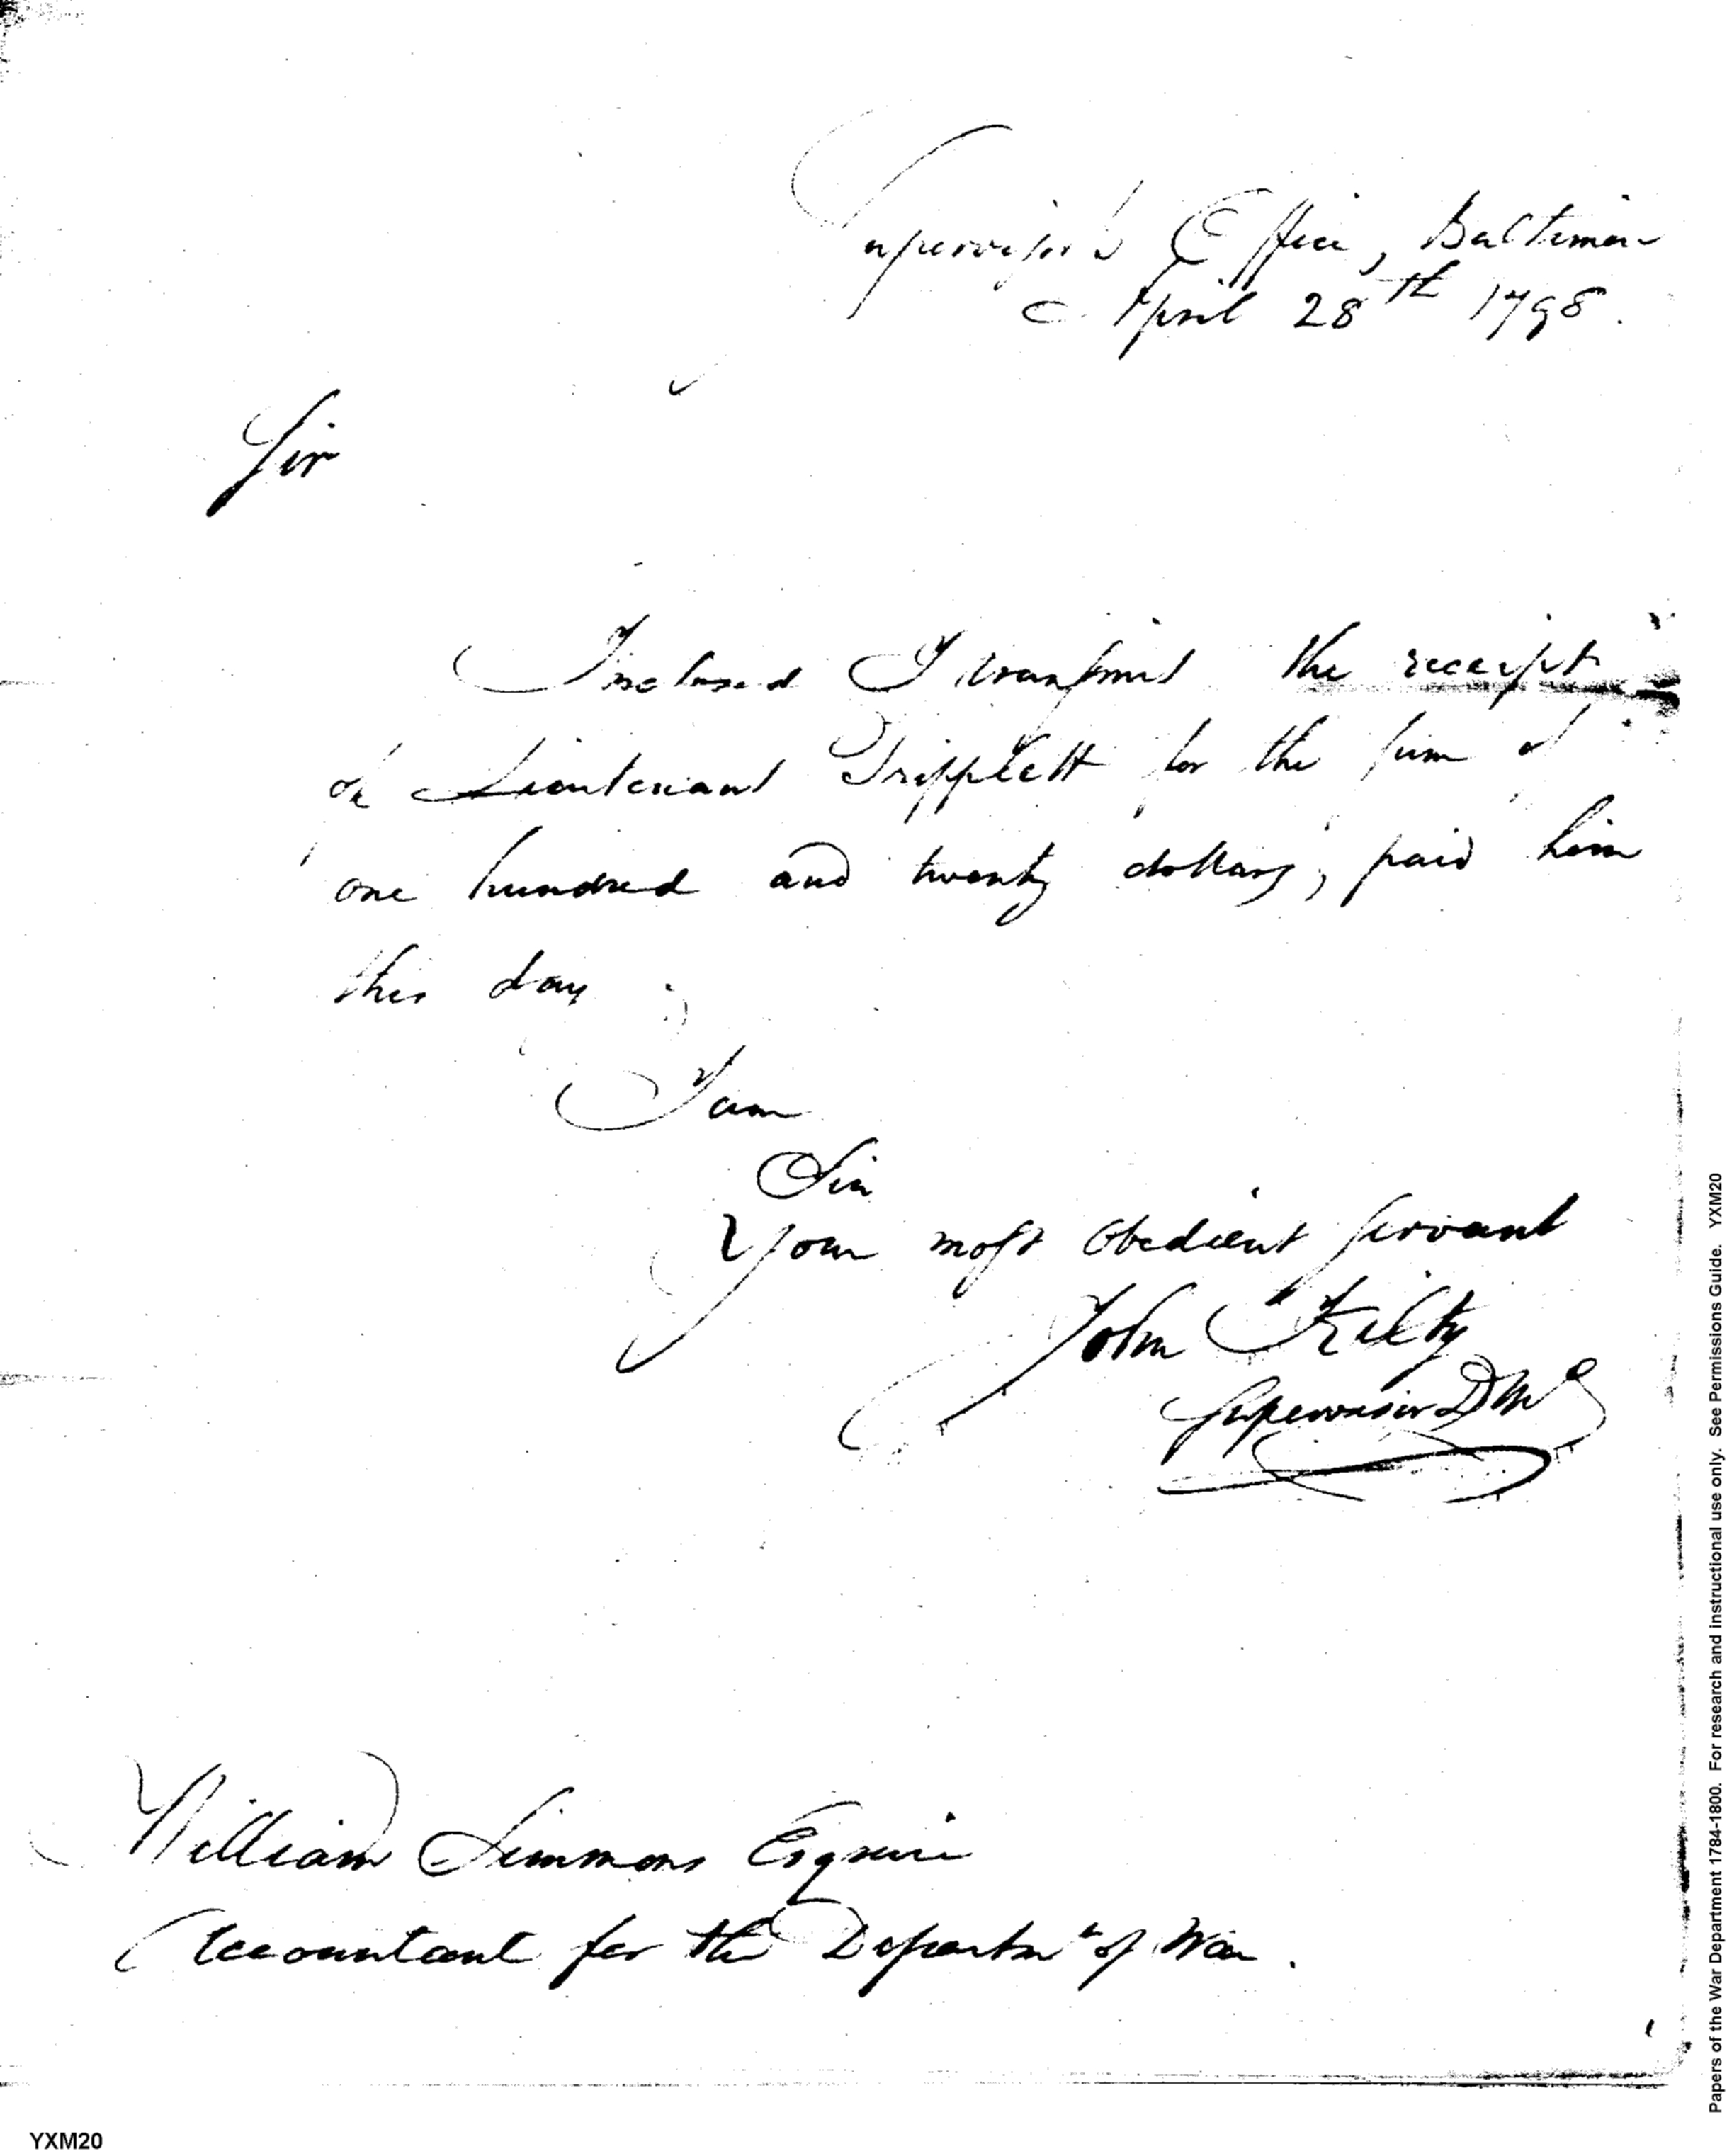 Supervisor's Office, Baltimore
April 28th 1798.
Sir
Inclosed I transmit the receipt
of Lieutenant Tripplett for the sum of
one hundred and twenty dollars, paid him
this day
I am
Sir
Your most obedient servant
John Kilty
Supervisor D Md
William Simmons Esquire
Accountant for the Departmt of War.
YXM20
Papers of the War Department 1784-1800. For research and instructional use only. See Permissions Guide. YXM20